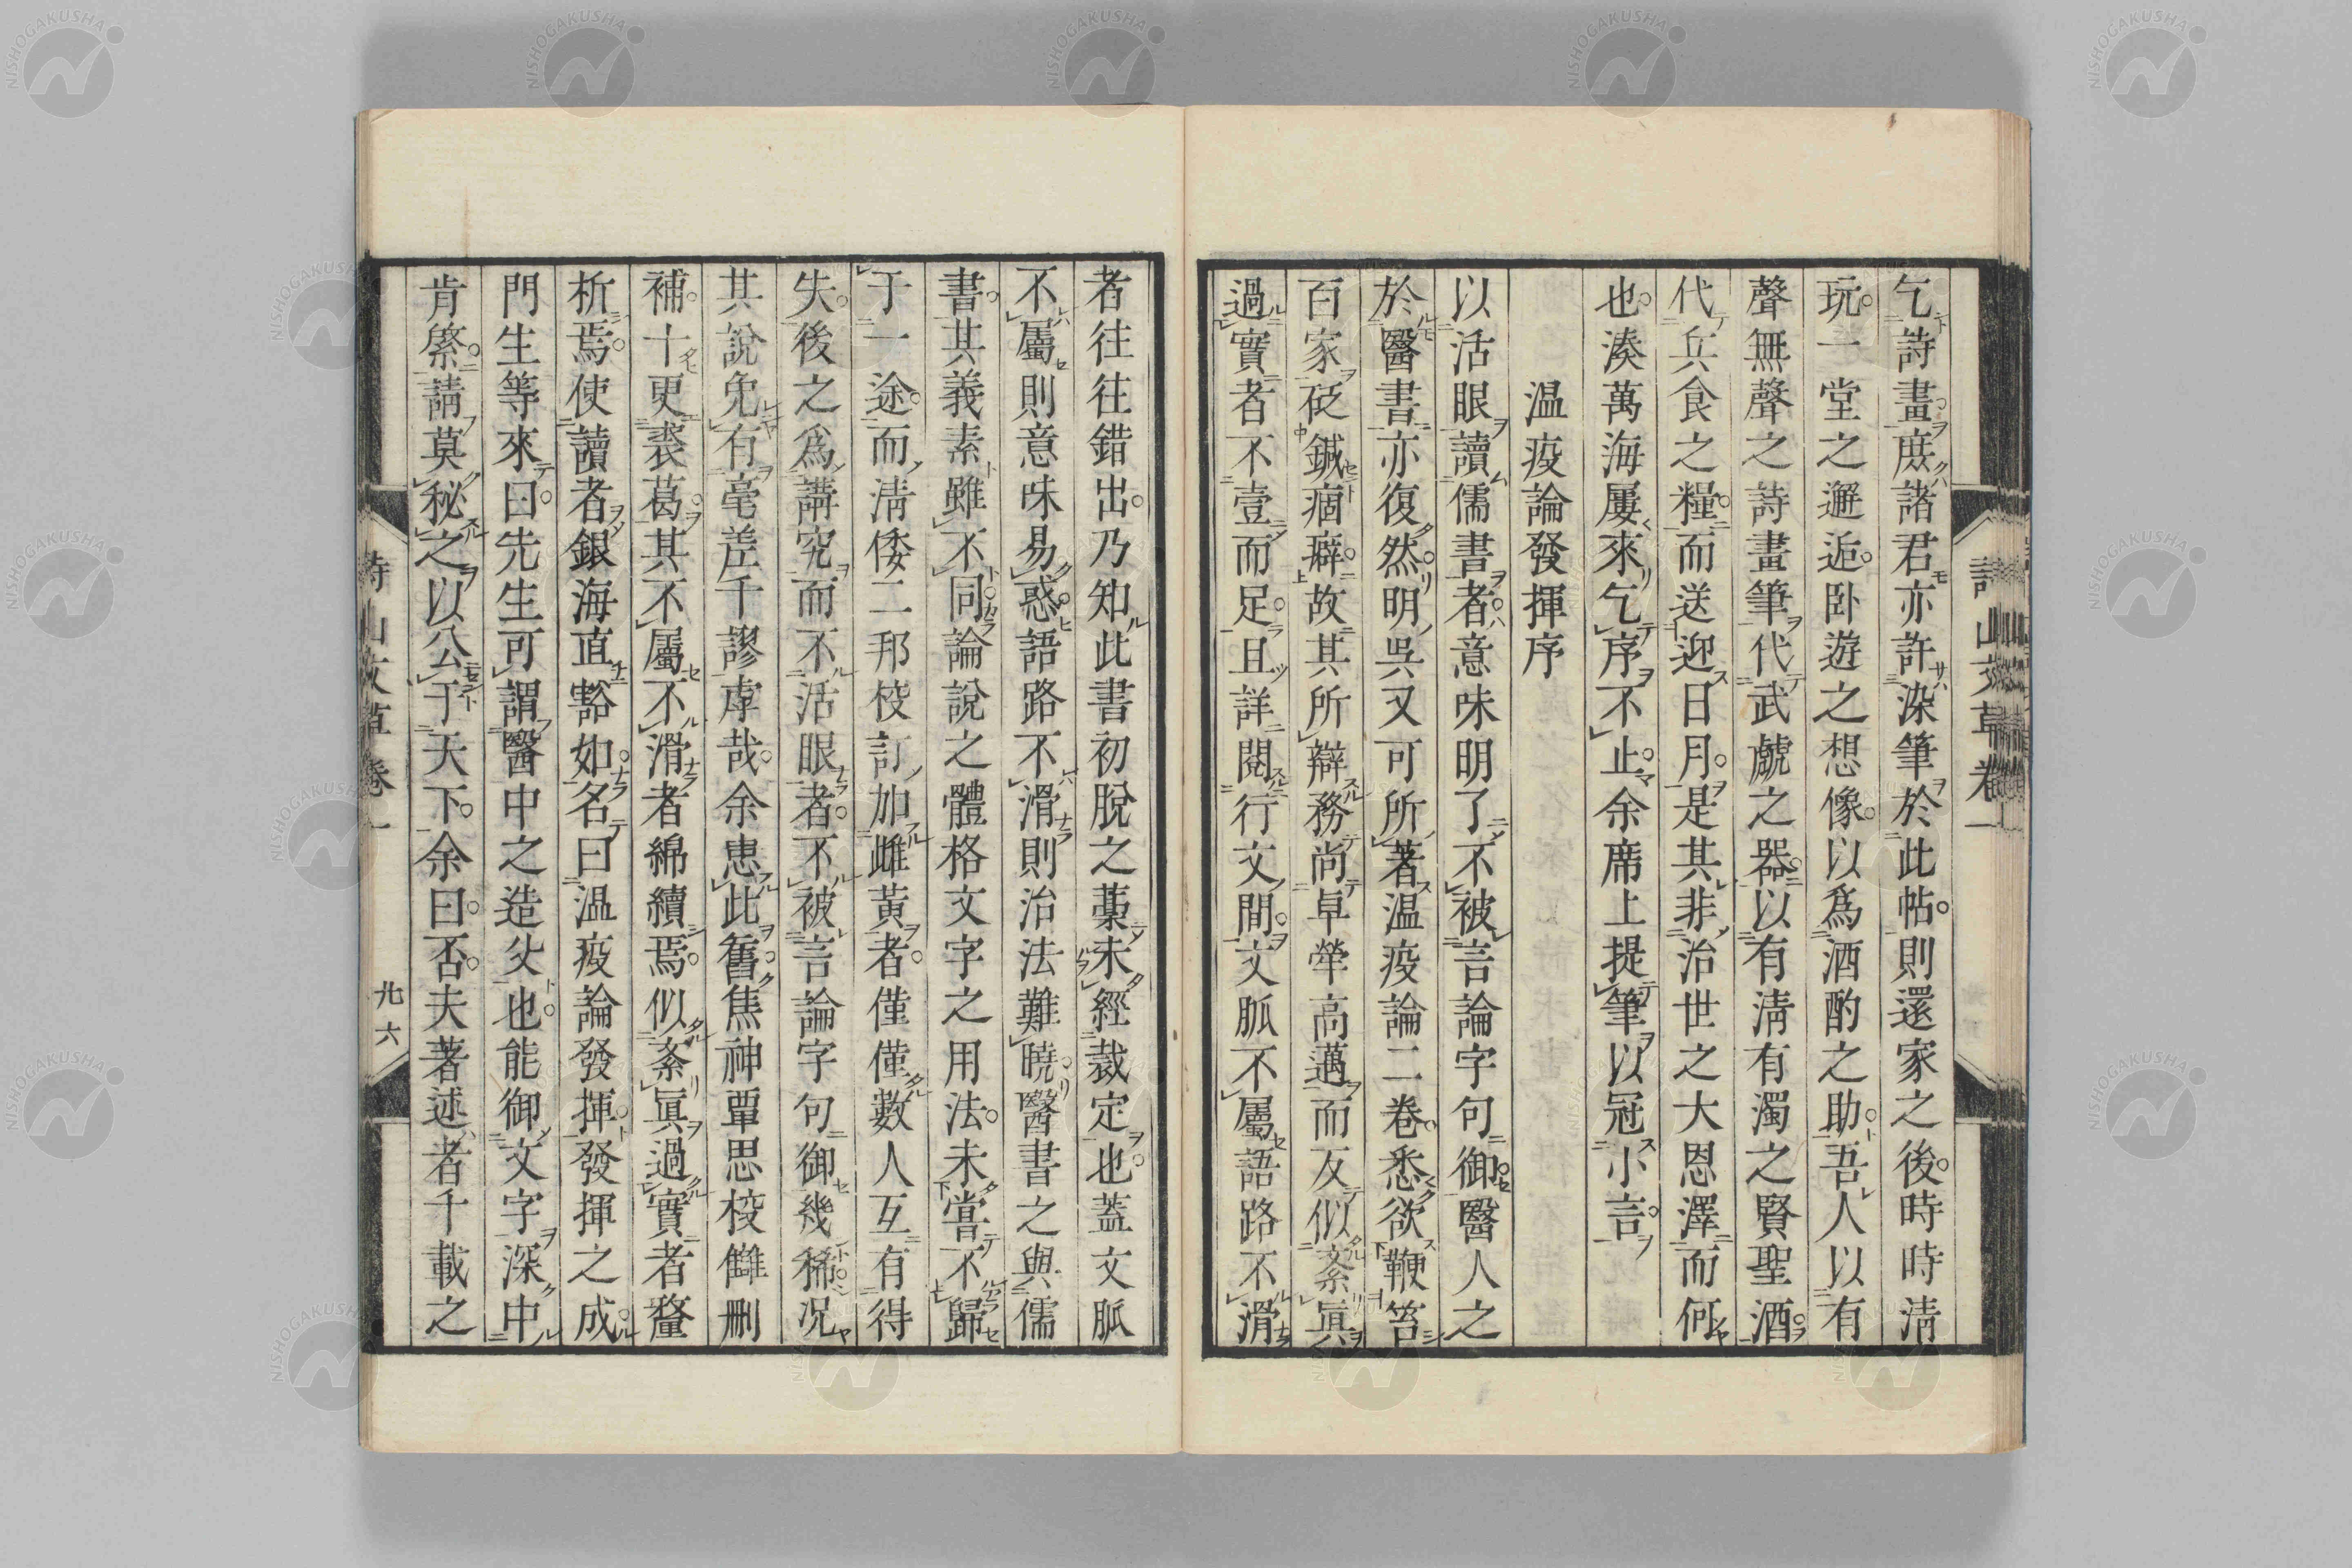 乞詩畫庶諸君亦許染筆於此帖則還家之後時時清
玩一堂之邂逅卧遊之想像以爲酒酌之助吾人以有
聲無聲之詩畫筆代武虣之器以有清有濁之賢聖酒
代兵食之糧而送迎日月是其非治世之大恩澤而何
也湊萬海屢來乞序不止余席上提筆以冠小言
温疫論發揮序
以活眼讀儒書者意味明了不被言論字句御醫人之
於醫書亦復然明吳又可所著温疫論二卷悉欲鞭笞
百家砭鍼痼癖故其所辯務尚卓犖高邁而友似紊眞
過實者不壹而足且詳閲行文間文脈不屬語路不滑
者往往錯出乃知此書初脫之藁未經裁定也蓋文脈
不屬則意味易惑語路不滑則治法難曉醫書之與儒
書其義素雖不同論說之體格文字之用法未嘗不歸
于一途而淸倭二邦校訂加雌黃者僅僅數人互有得
失後之爲講究而不活眼者不被言論字句御幾稀况
其說免有毫差千謬虖哉余患此舊焦神覃思校讎刪
補十更裘葛其不屬不滑者綿續焉似紊眞過實者釐
析焉使讀者銀海直豁如名曰温疫論發揮發揮之成
門生等來曰先生可謂醫中之造父也能御文字深中
肯綮請莫秘之以公于天下余曰否夫著述者千載之
詩山文草卷一
九六